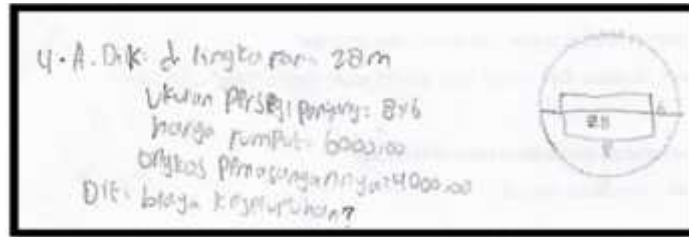 4. A. Dik: d lingkaran: 28m
Ukuran Persegi panjang: 8x6
harga rumput: 6000.00
ongkos Pemasangannya: 4000.00
Dit: biaya keseluruhan?
28
6
8